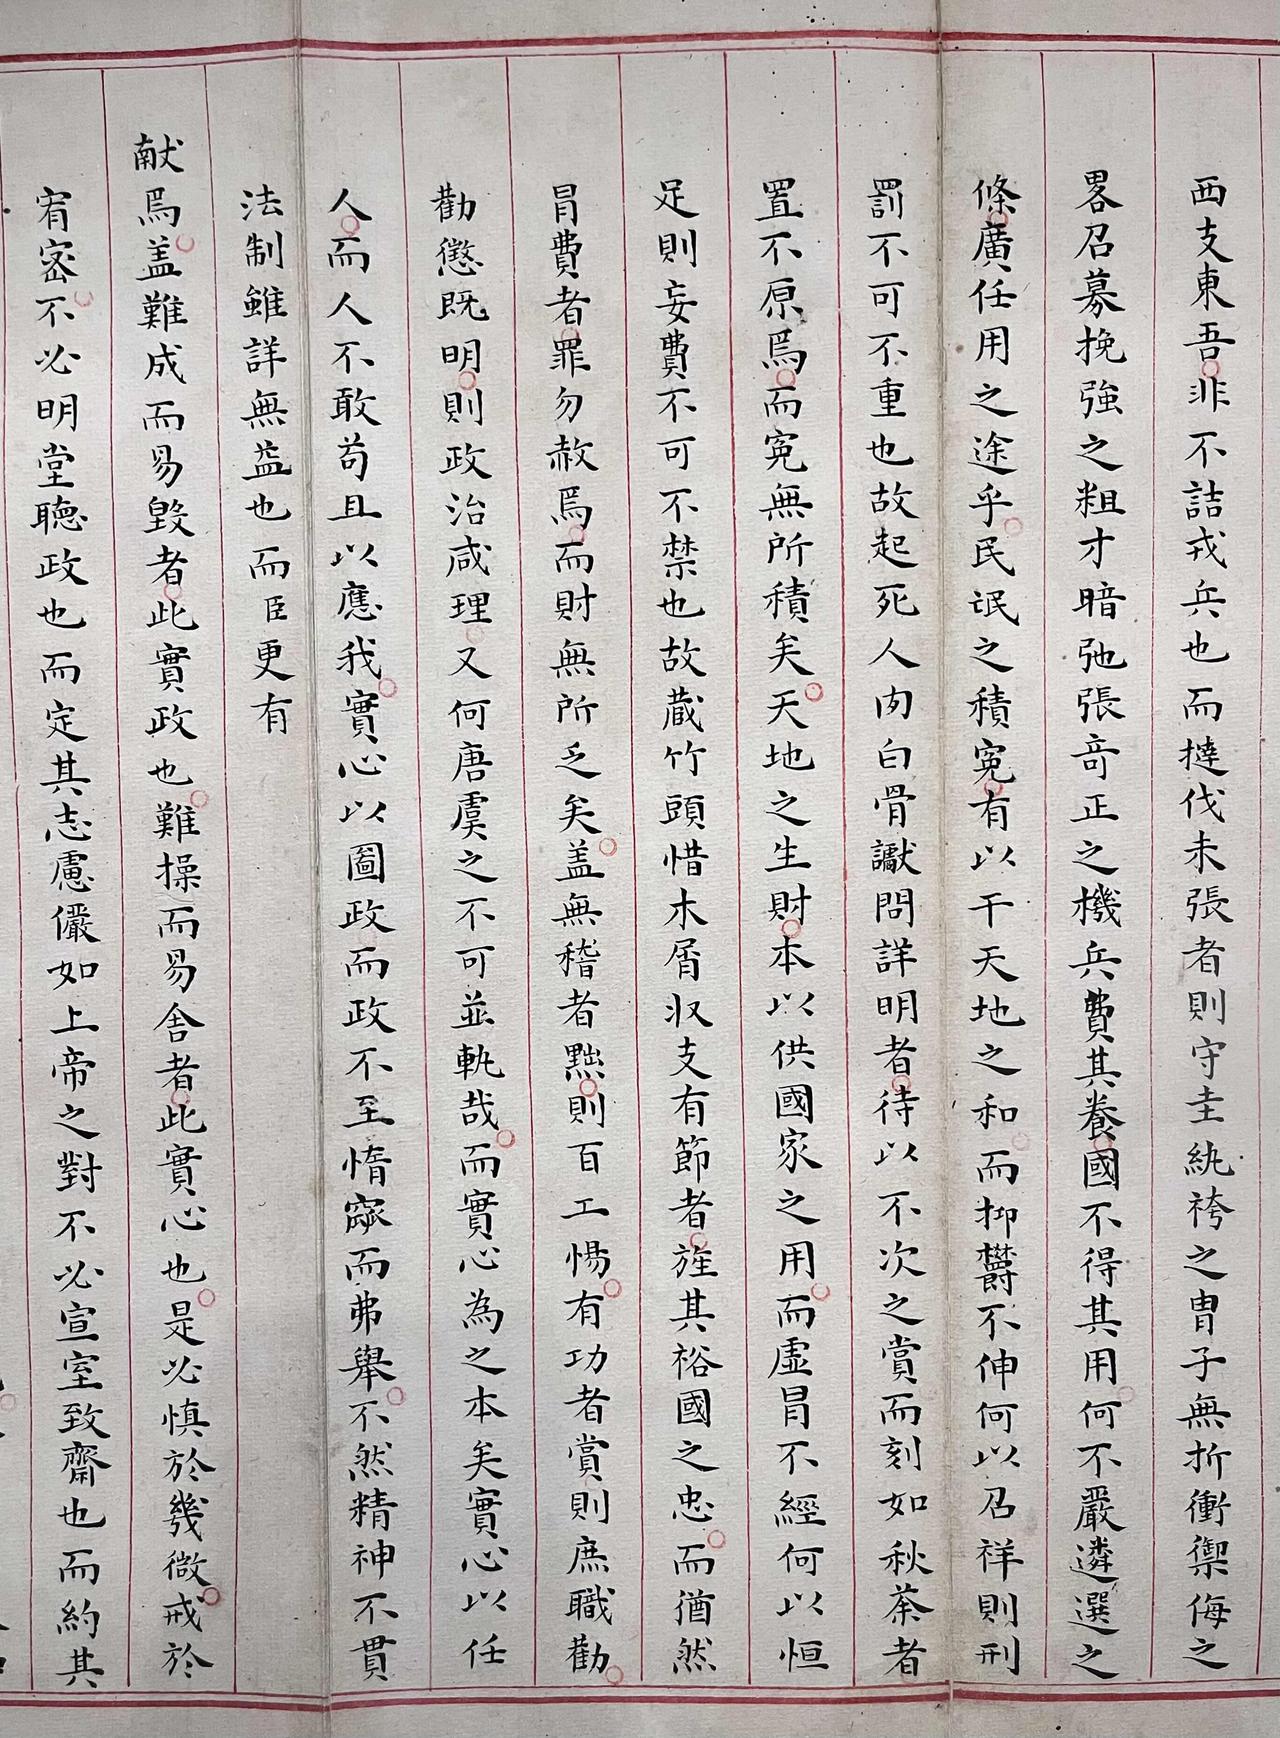 西支東吾非不詰戎兵也而撻伐未張者則守圭紈袴之胄子無折衝禦侮之
畧召募挽強之粗才暗弛張竒正之機兵費其養國不得其用何不嚴遴選之
條廣任用之途乎民氓之積寃有以干天地之和而抑欝不伸何以召祥則刑
罰不可不重也故起死人肉白骨讞問詳明者待以不次之賞而刻如秋荼者
置不原焉而寃無所積矣天地之生財本以供國家之用而虛冒不經何以恒
足則妄費不可不禁也故蔵竹頭惜木屑収支有節者旌其裕國之忠而猶然
冐費者罪勿赦焉而財無所乏矣盖無稽者黜則百工惕有功者賞則庶職勸
勸懲既明則政治咸理又何唐虞之不可並軌哉而實心為之本矣實心以任
人而人不敢苟且以應我實心以圖政而政不至惰窳而弗舉不然精神不貫
法制雖詳無益也而臣更有
献焉盖難成而易毀者此實政也難操而易舍者此實心也是必慎於幾微戒於
宥密不必明堂聴政也而定其志慮儼如上帝之對不必宣室致齋也而約其